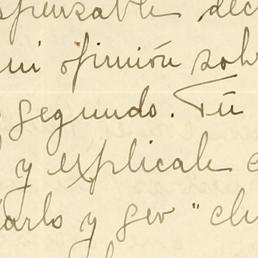 spensable dec
mi opinión sob
segundo. Tú
y explicale
arlo y ser "